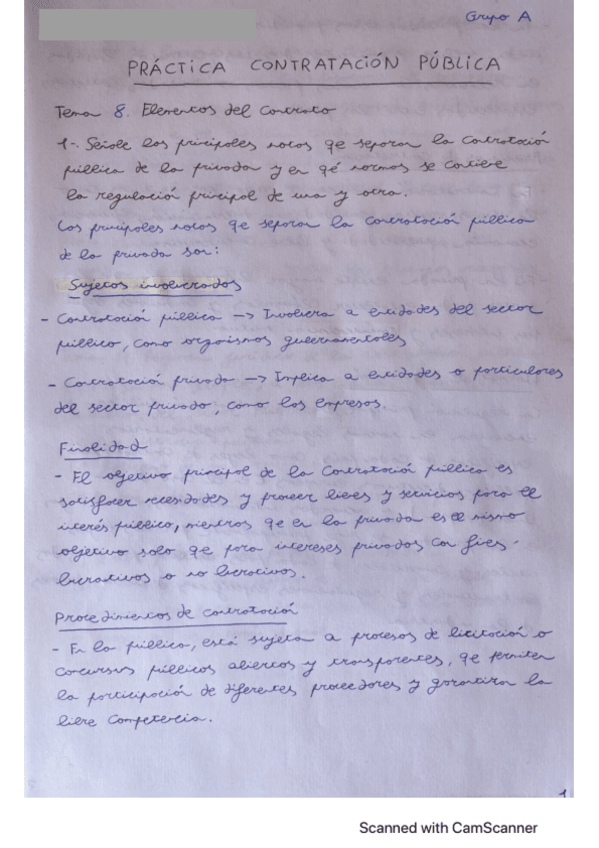 Grupo A
PRÁCTICA CONTRATACIÓN PÚBLICA
Tema 8. Elementos del Contrato
1-. Señale las principales notas qe separan la Contratación
pública de la privada y en qé normas se contiene
la regulación principal de una y otra.
Las principales notas qe separan la contratación pública
de la privada son:
Sujetos involucrados
- Contratación pública → Involucra a entidades del sector
público, como organismos gubernamentales
- Contratación privada → Implica a entidades o particulares
del sector privado, como las empresas.
Finalidad
- El objetivo principal de la Contratación pública es
satisfacer necesidades y proveer bienes y servicios para el
interés público, mientras qe en la privada es el mismo
objetivo solo qe para intereses privados con fines
lucrativos o no lucrativos.
Procedimientos de contratación
- En la pública, está sujeta a procesos de licitación o
concursos públicos abiertos y transparentes, qe permiten
la participación de diferentes proveedores y garantizan la
libre Competencia.
1
Scanned with CamScanner